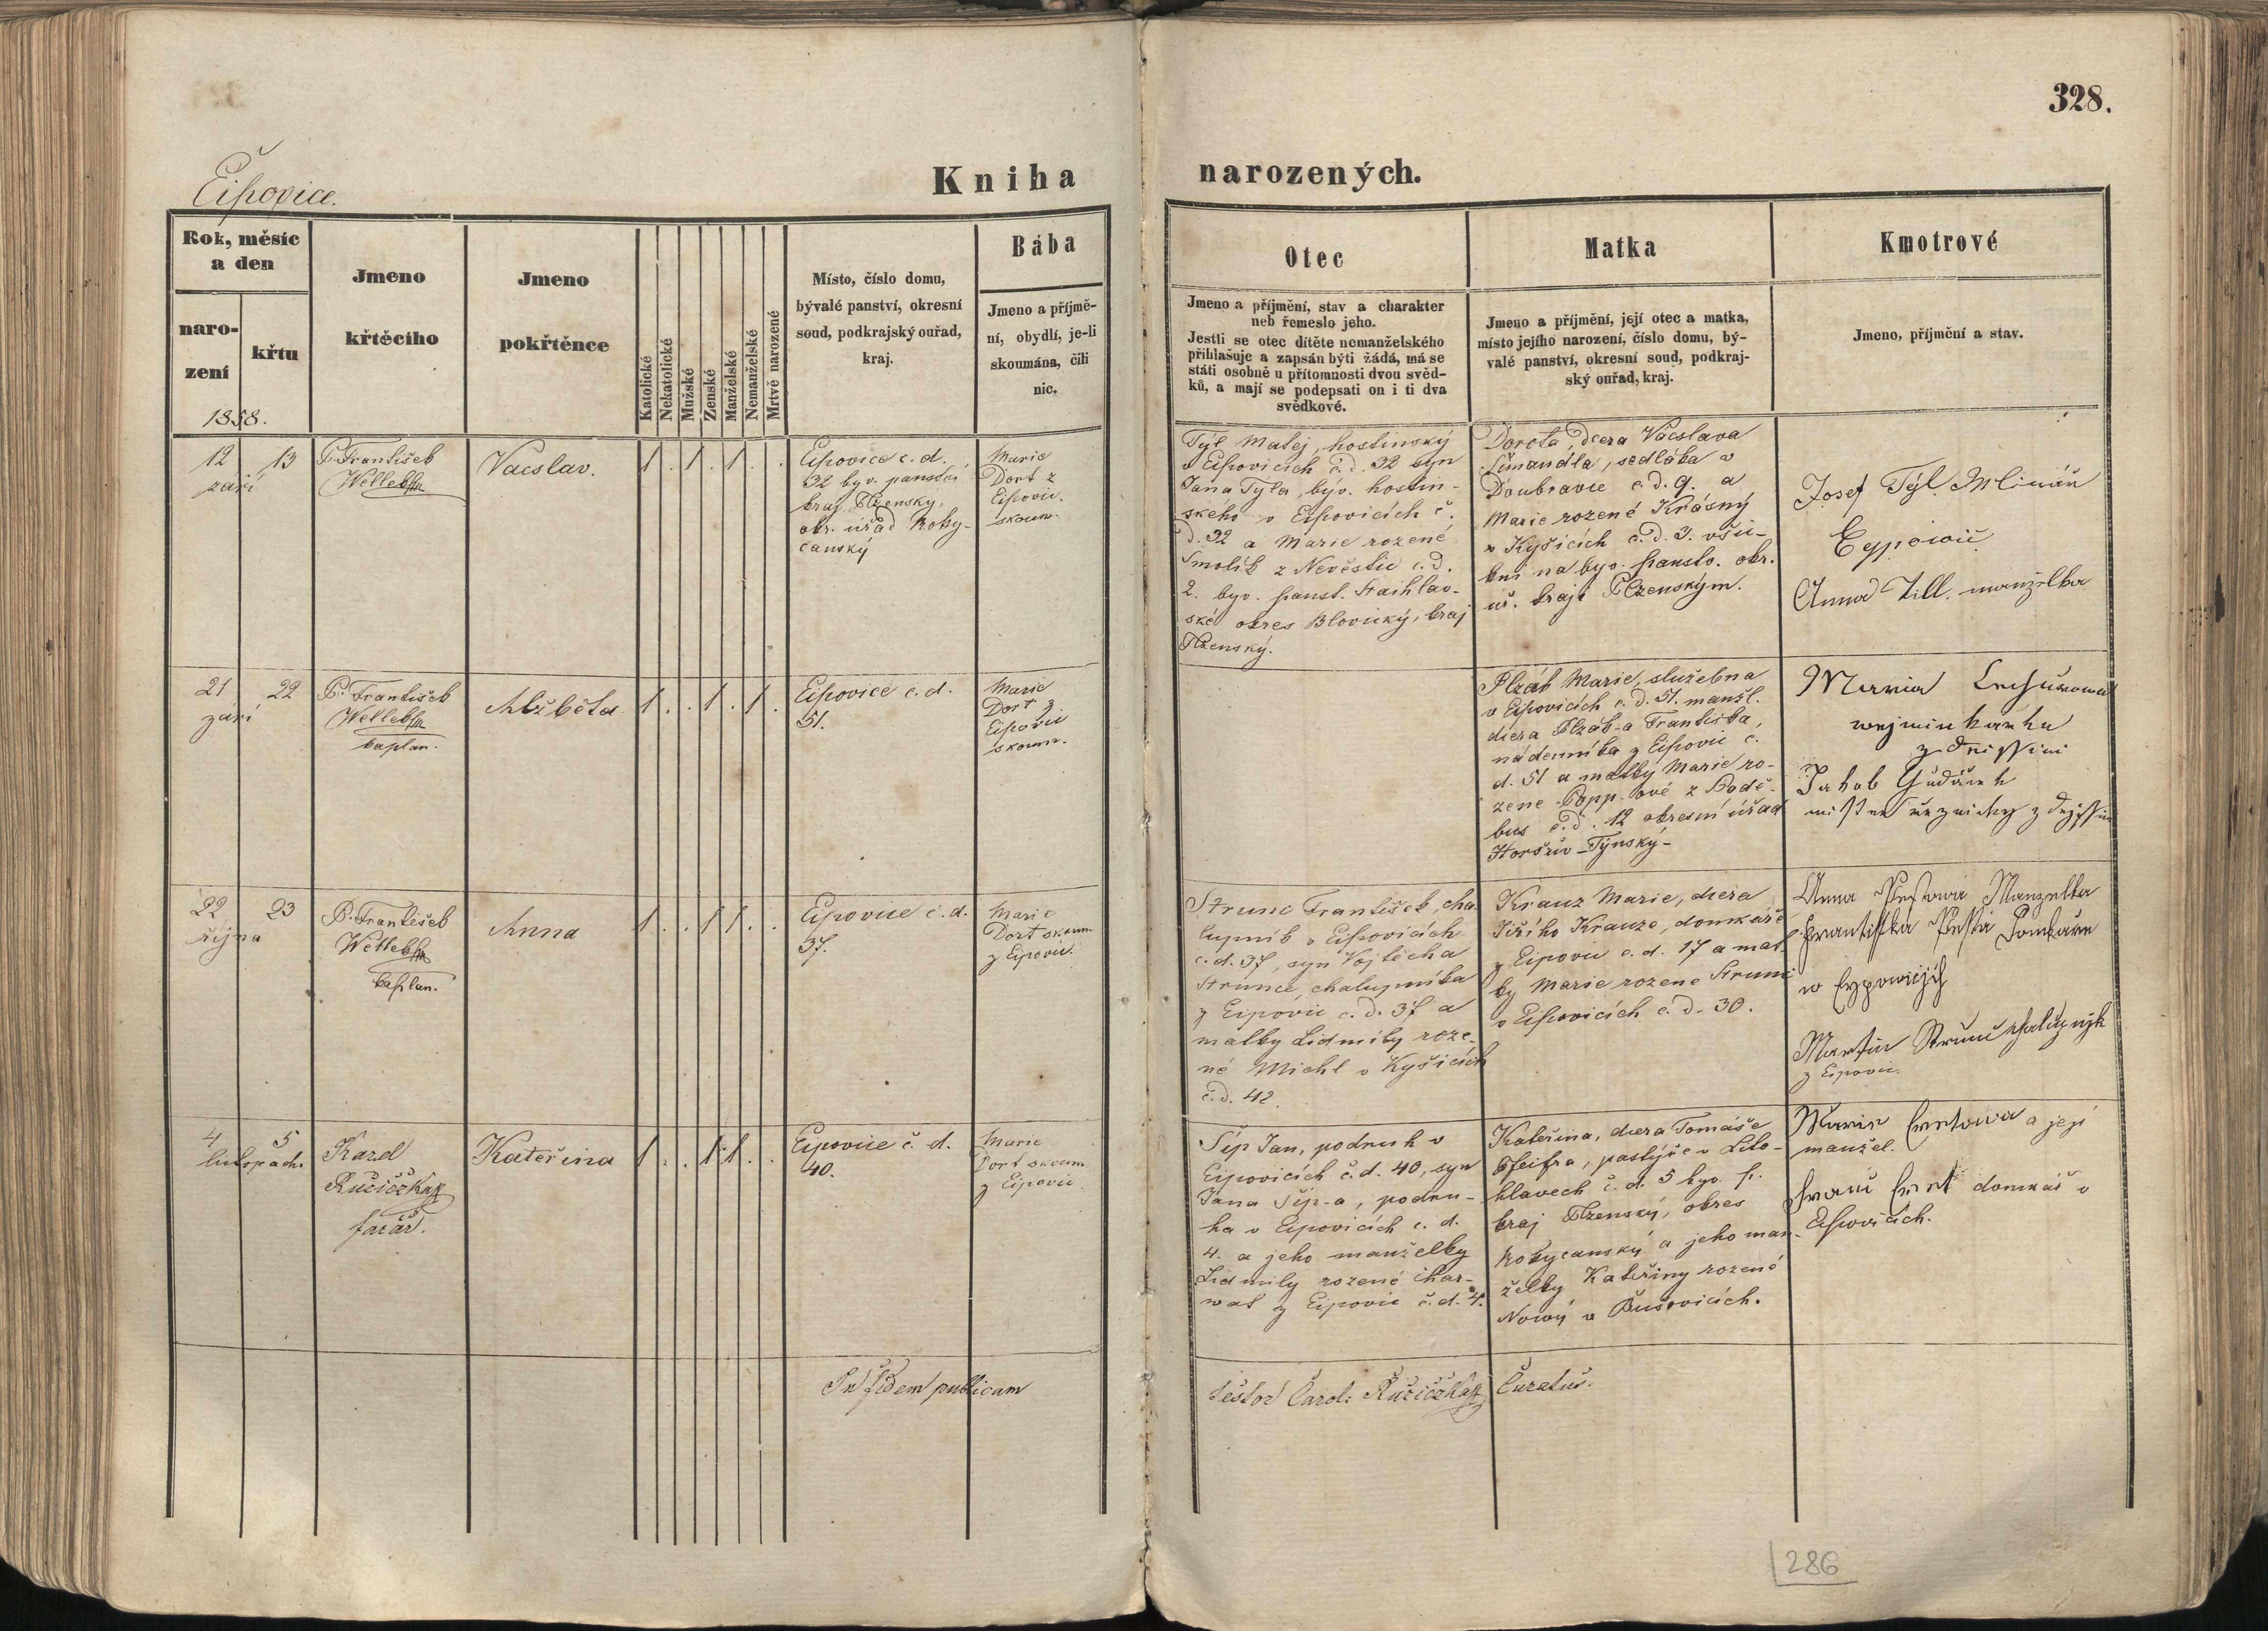 328.
Eipovice.
Kniha narozených.
Rok, měsíc
a den
naro-
zení
křtu
1858.
Jmeno
křtěcího
Jmeno
pokřtěnce
Katolické
Nekatolické
Mužské
Ženské
Manželské
Nemanželské
Mrtvě narozené
Místo, číslo domu,
bývalé panství, okresní
soud, podkrajský ouřad,
kraj.
Bába
Jmeno a příjmě-
ní, obydlí, je-li
skoumána, čili
nic.
Otec
Jmeno a příjmění, stav a charakter
neb řemeslo jeho.
Jestli se otec dítěte nemanželského
přihlašuje a zapsán býti žádá, má se
státi osobně u přítomnosti dvou svěd-
ků, a mají se podepsati on i ti dva
svědkové.
Matka
Jmeno a příjmění, její otec a matka,
místo jejího narození, číslo domu, bý-
valé panství, okresní soud, podkraj-
ský ouřad, kraj.
Kmotrové
Jmeno, příjmění a stav.
12 13
září
P. František
Welleb
Vacslav.
1 . 1 . 1 . .
Eipovice č. d.
32 byv. panství
kraj Plzenský,
okr. úřad Roky-
canský
Marie
Dort z
Eipovic.
skoum.
Týl Matěj, hostinský
v Eipovicích č. d. 32 syn
Jana Týla, býv. hostin-
ského v Eipovicích č.
d. 32 a Marie rozené
Smolík z Nevěstic č. d.
2. byv. panst. Štáhlav-
ské okres Blovický, kraj
Plzenský.
Dorota, dcera Vácslava
Šimandla, sedláka v
Doubravce č. d. 9. a
Marie rozené Krásný
v Kyšicích č. d. 3. všic-
kni na byv. panstv. okr.
úř. kraji Plzenským.
Josef Týl. Mlinář
Eypowic
Anna Till. manželka
21 22
září
P. František
Welleb
kaplan.
Alžběta
1 . . 1 . 1 .
Eipovice č. d.
51.
Marie
Dort z
Eipovic
skoum.
Plzák Marie, služebna
v Eipovicích č. d. 51. manžl.
dcera Plzák-a Františka,
nádenníka z Eipovic č.
d. 51 a matky Marie ro-
zené Popp-ové z Podě-
bus č. d. 12 okresní úřad
Horšův-Týnský-
Maria
wejminkařka
Jakob
22 23
října
P. František
Welleb
kaplan.
Anna
1 . . 1 1 . .
Eipovice č. d.
37.
Marie
Dort skoum
z Eipovic.
Strunc František, cha-
lupník v Eipovicích
č. d. 37, syn Vojtěcha
Strunce, chalupníka
z Eipovic č. d. 37 a
matky Lidmily roze-
né Michl v Kyšicích
č. d. 42.
Krauz Marie, dcera
Jiřího Krauze, domkáře
z Eipovic č. d. 17 a mat-
ky Marie rozené Strunc
v Eipovicích č. d. 30.
Anna Manzelka
Frantisska Domkaře
w Eypowicých
Martin Strunc Chalupnjk
z Eipovic.
4 5
listopadu
Karel
Ružiczka
farář.
Kateřina
1 . . 1 1 . .
Eipovice č. d.
40.
Marie
Dort skoum
z Eipovic
Šíp Jan, podruh v
Eipovicích č. d. 40, syn
Jana Šíp-a, podru-
ha v Eipovicích č. d.
4. a jeho manželky
Lidmily rozené Char-
wat z Eipovic č. d. 4.
Kateřina, dcera Tomáše
Pfeifra, pastýře v Lito-
hlavech č. d. 5 byv. p.
kraj Plzenský, okres
Rokycanský a jeho man-
želky Kateřiny rozené
Nowý v Bušovicích.
Marie a její
manžel.
domkář v
Eipovicích.
In fidem publicam
testor Carol: Ružiczka Curatus.
286